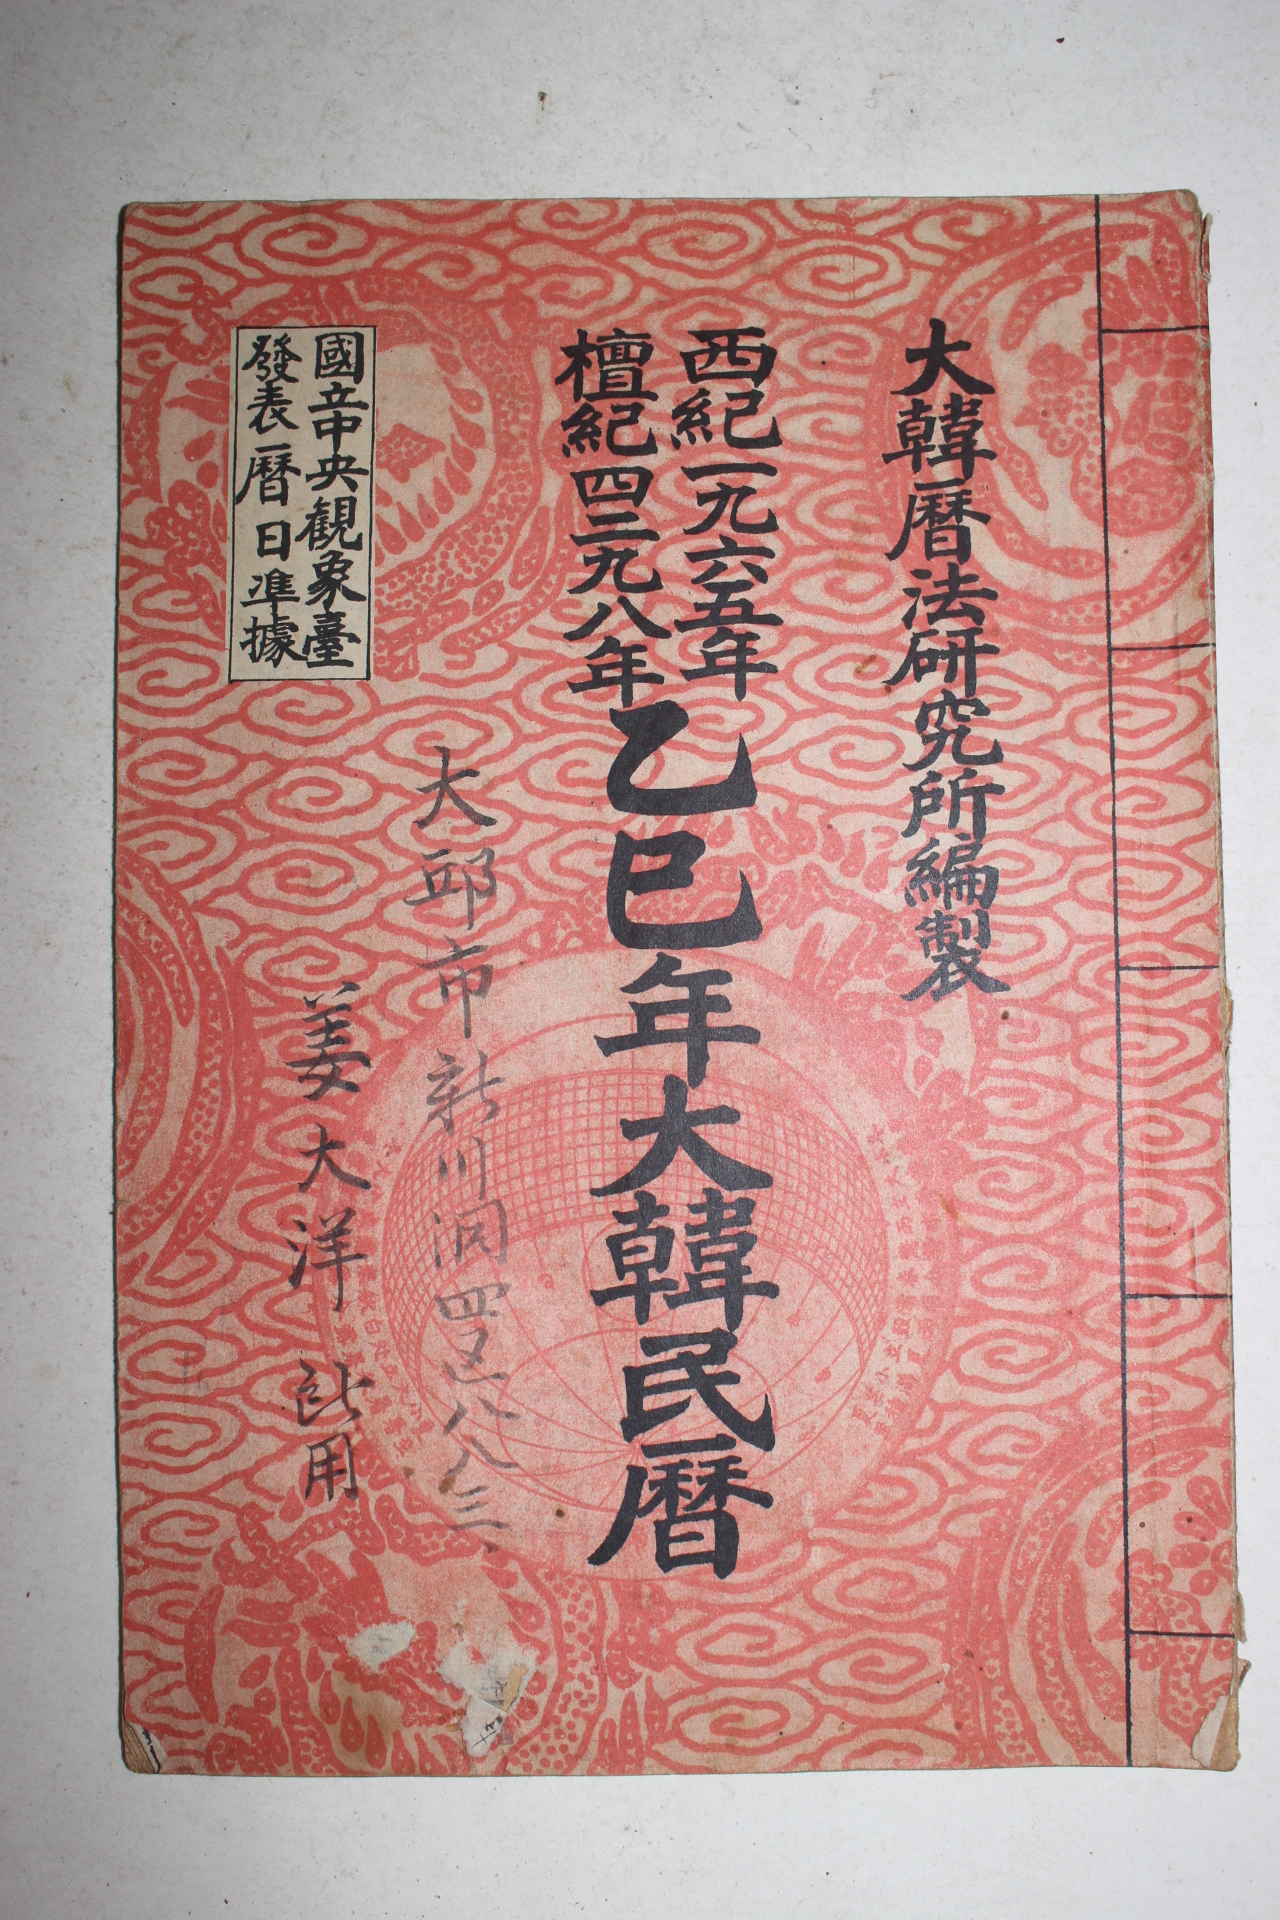 大韓曆法研究所編製
西紀一九六五年
檀紀四二九八年
乙巳年大韓民曆
國立中央観象臺
發表曆日準據
大邱市新川洞四区八八三
姜大洋 㪽用